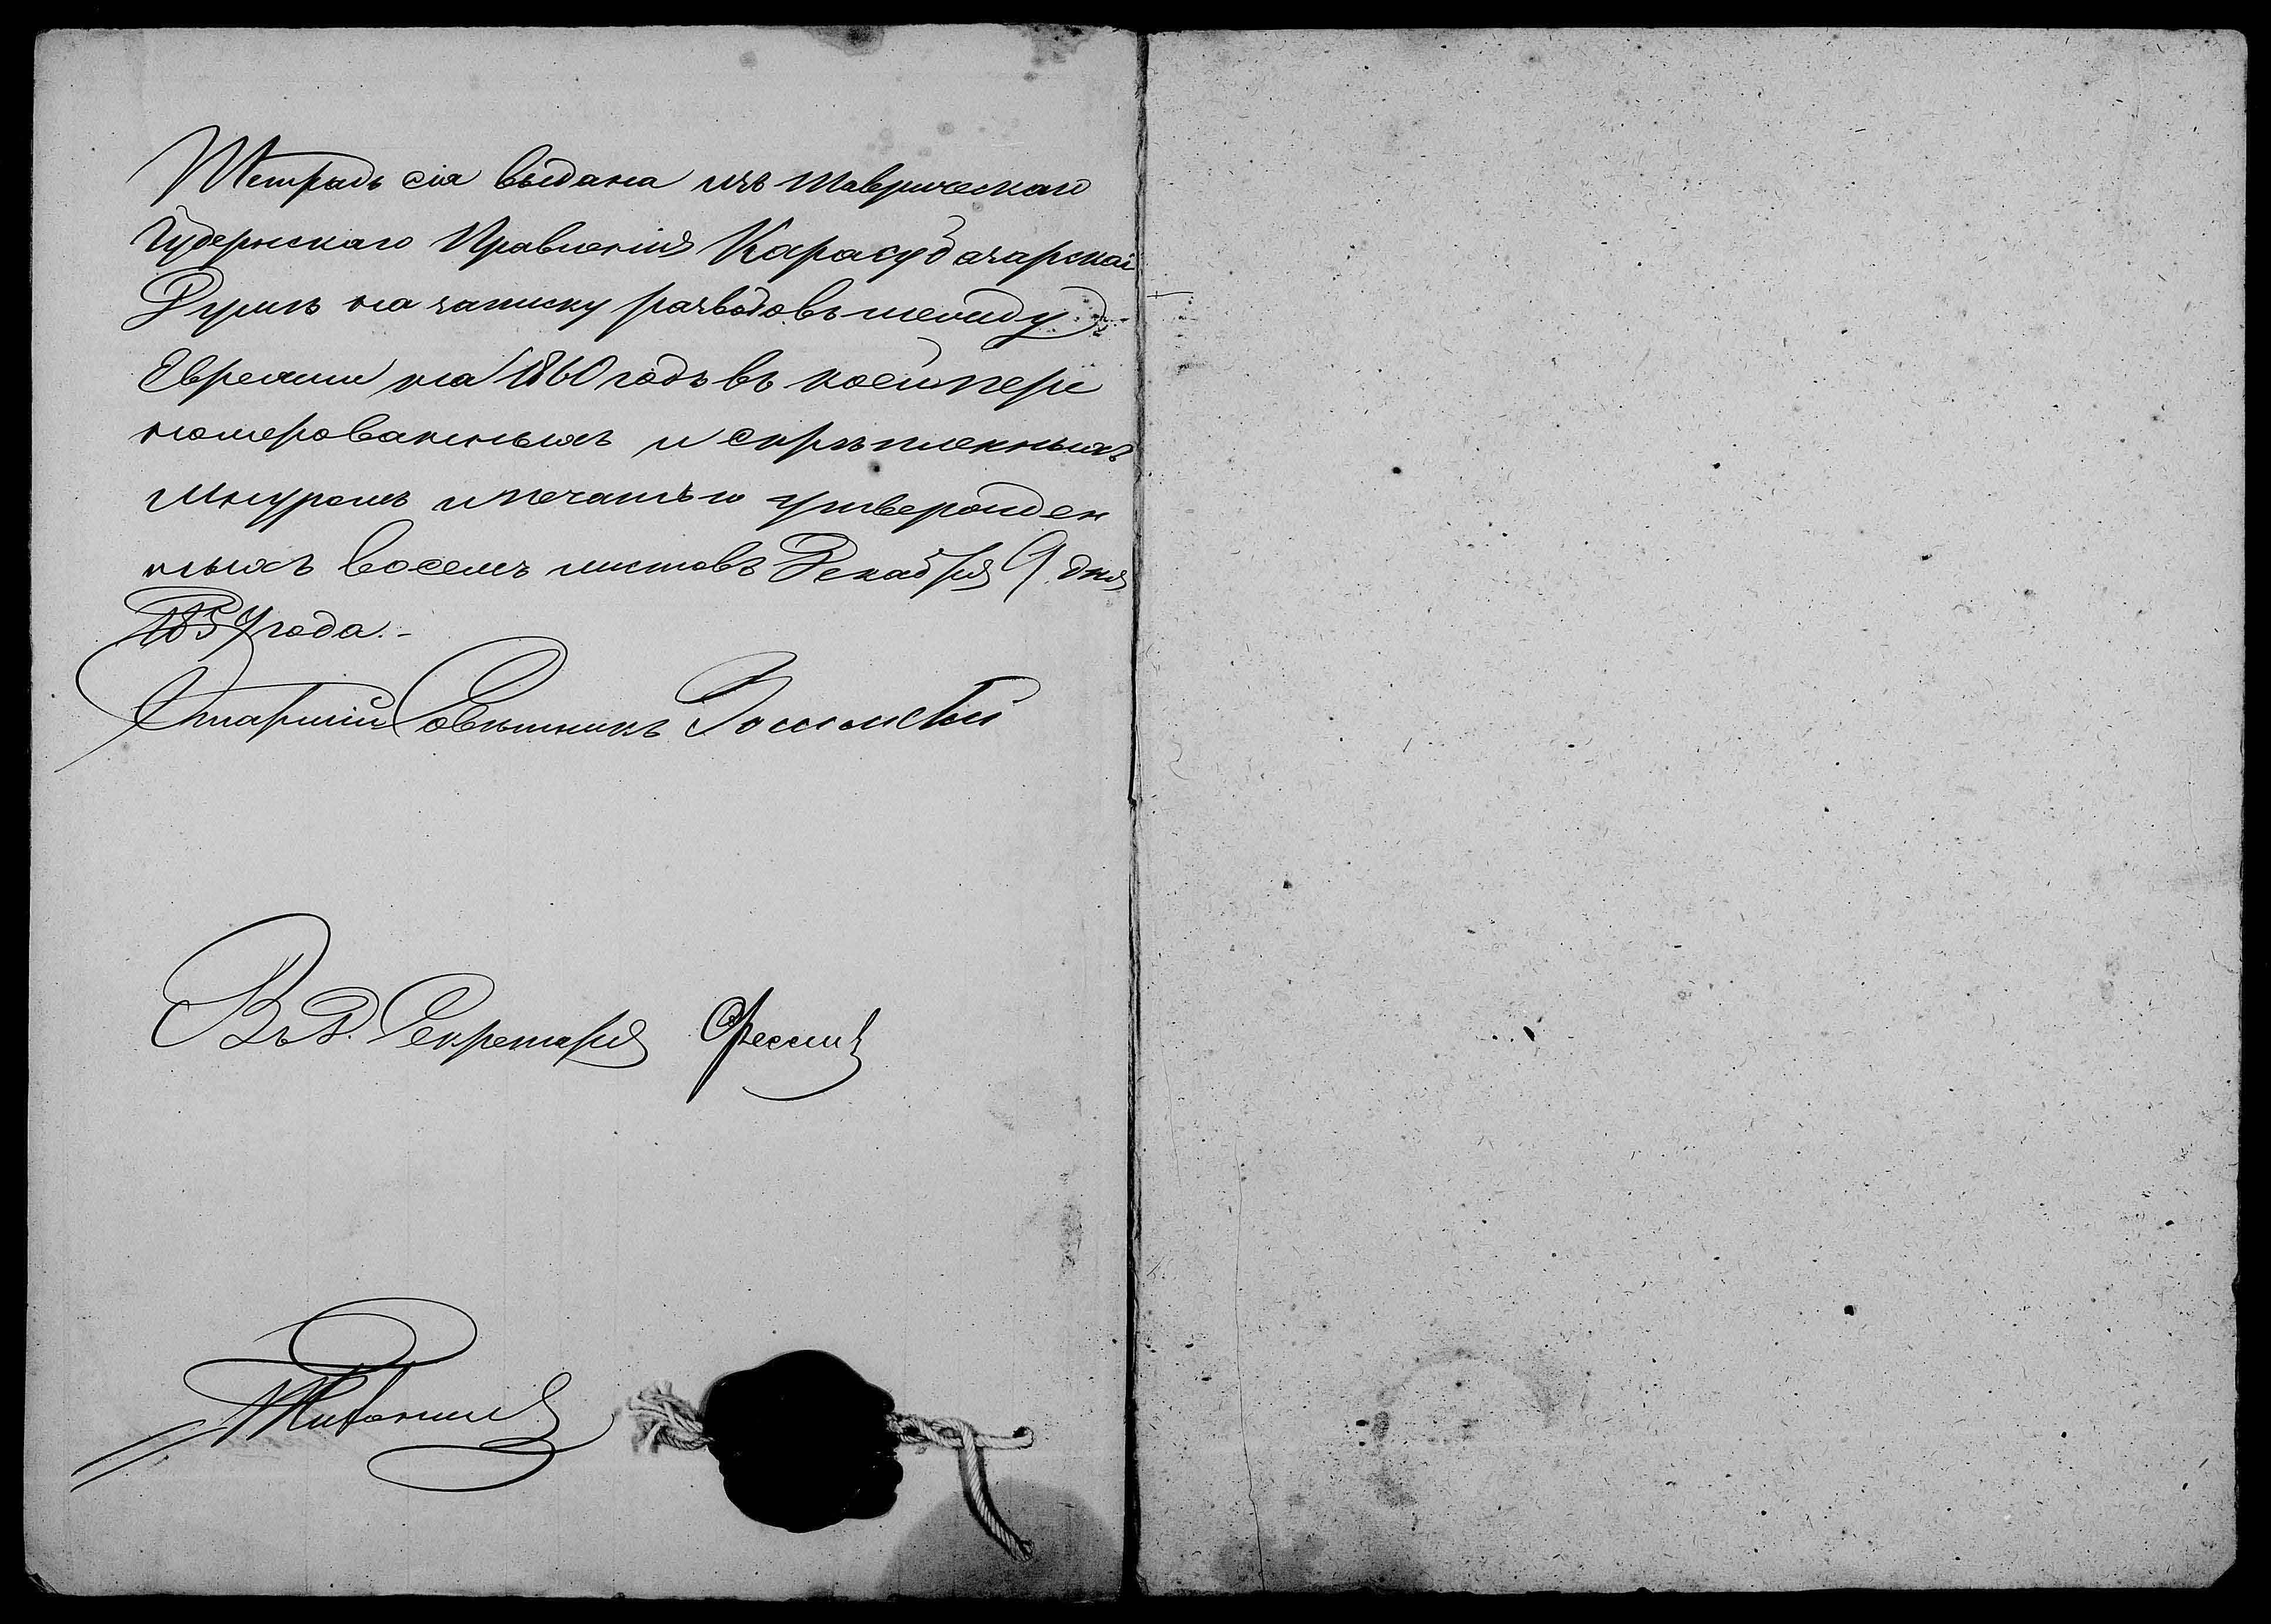 Тетрадь сія выдана изъ Таврическаго
Губернскаго Правленія Карасубазарской
Думѣ на записку разводовъ между
Евреями на 1860 годъ въ коей пере
номерованныхъ и скрѣпленныхъ
шнуромъ и печатью утвержден
ныхъ восемь листовъ Декабря 9 дня
1859 года.-
Старшій Совѣтникъ
Въ Д. Секретаря